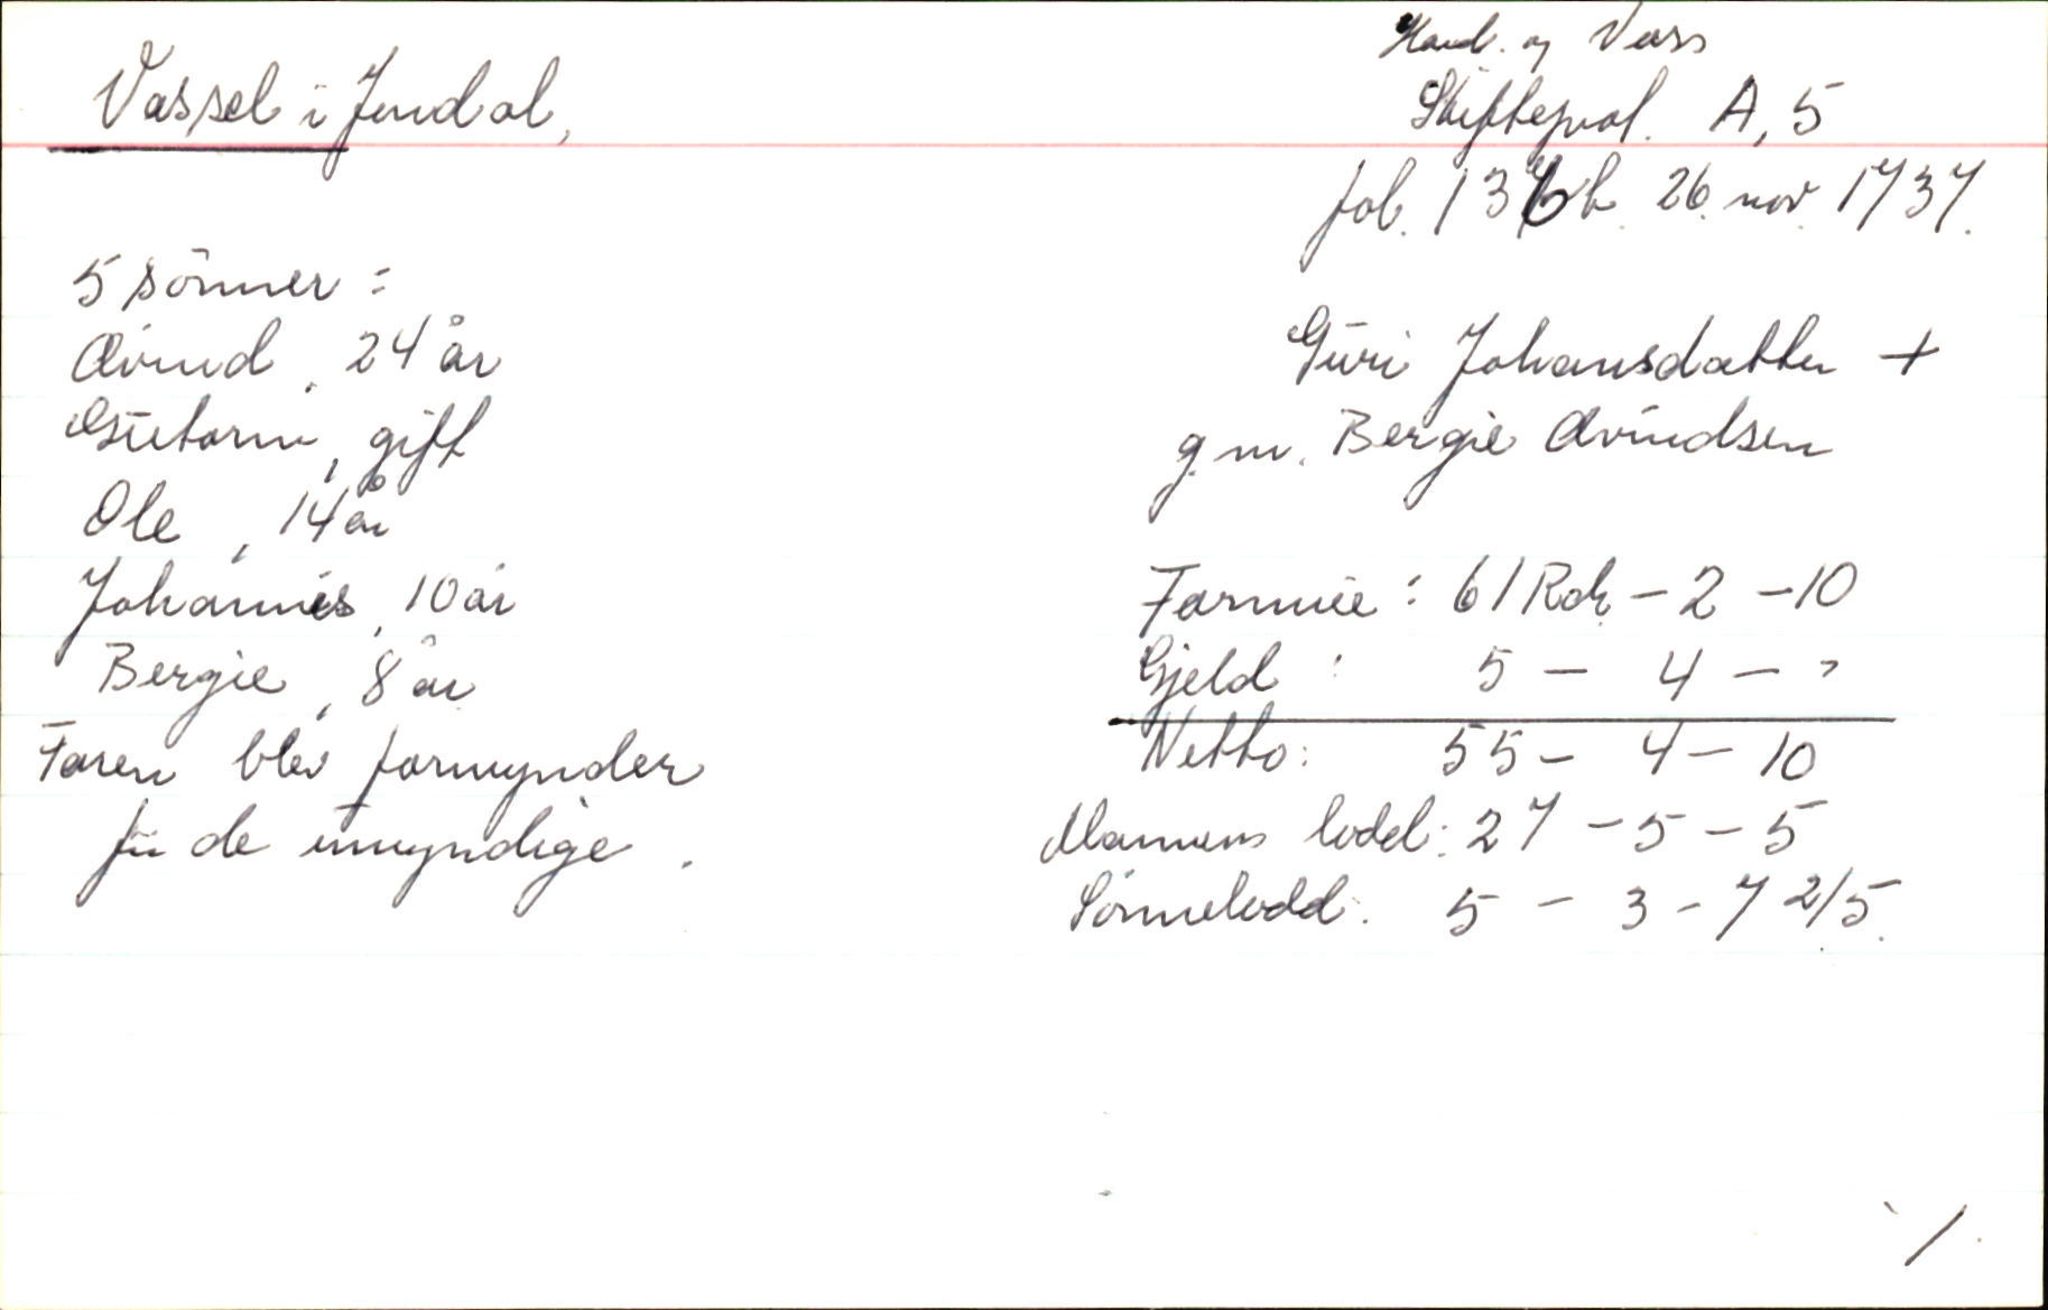 Vassel i Jondal,
Hard. og Voss
Skifteprot. A, 5
fol. 136b 26. nov. 1737.
5 sønner:
Øvind, 24 år
Guttorm, gift
Ole, 14 år
Johannes, 10 år
Bergie, 8 år
Faren blev formynder
for de umyndige.
Guri Johansdatter +
g.m. Bergie Øvindsen
Formue: 61 Rdr. - 2 - 10
Gjeld: 5 - 4 - "
Netto: 55 - 4 - 10
Mannens lodd: 27 - 5 - 5
Sønnelodd: 5 - 3 - 7 2/5.